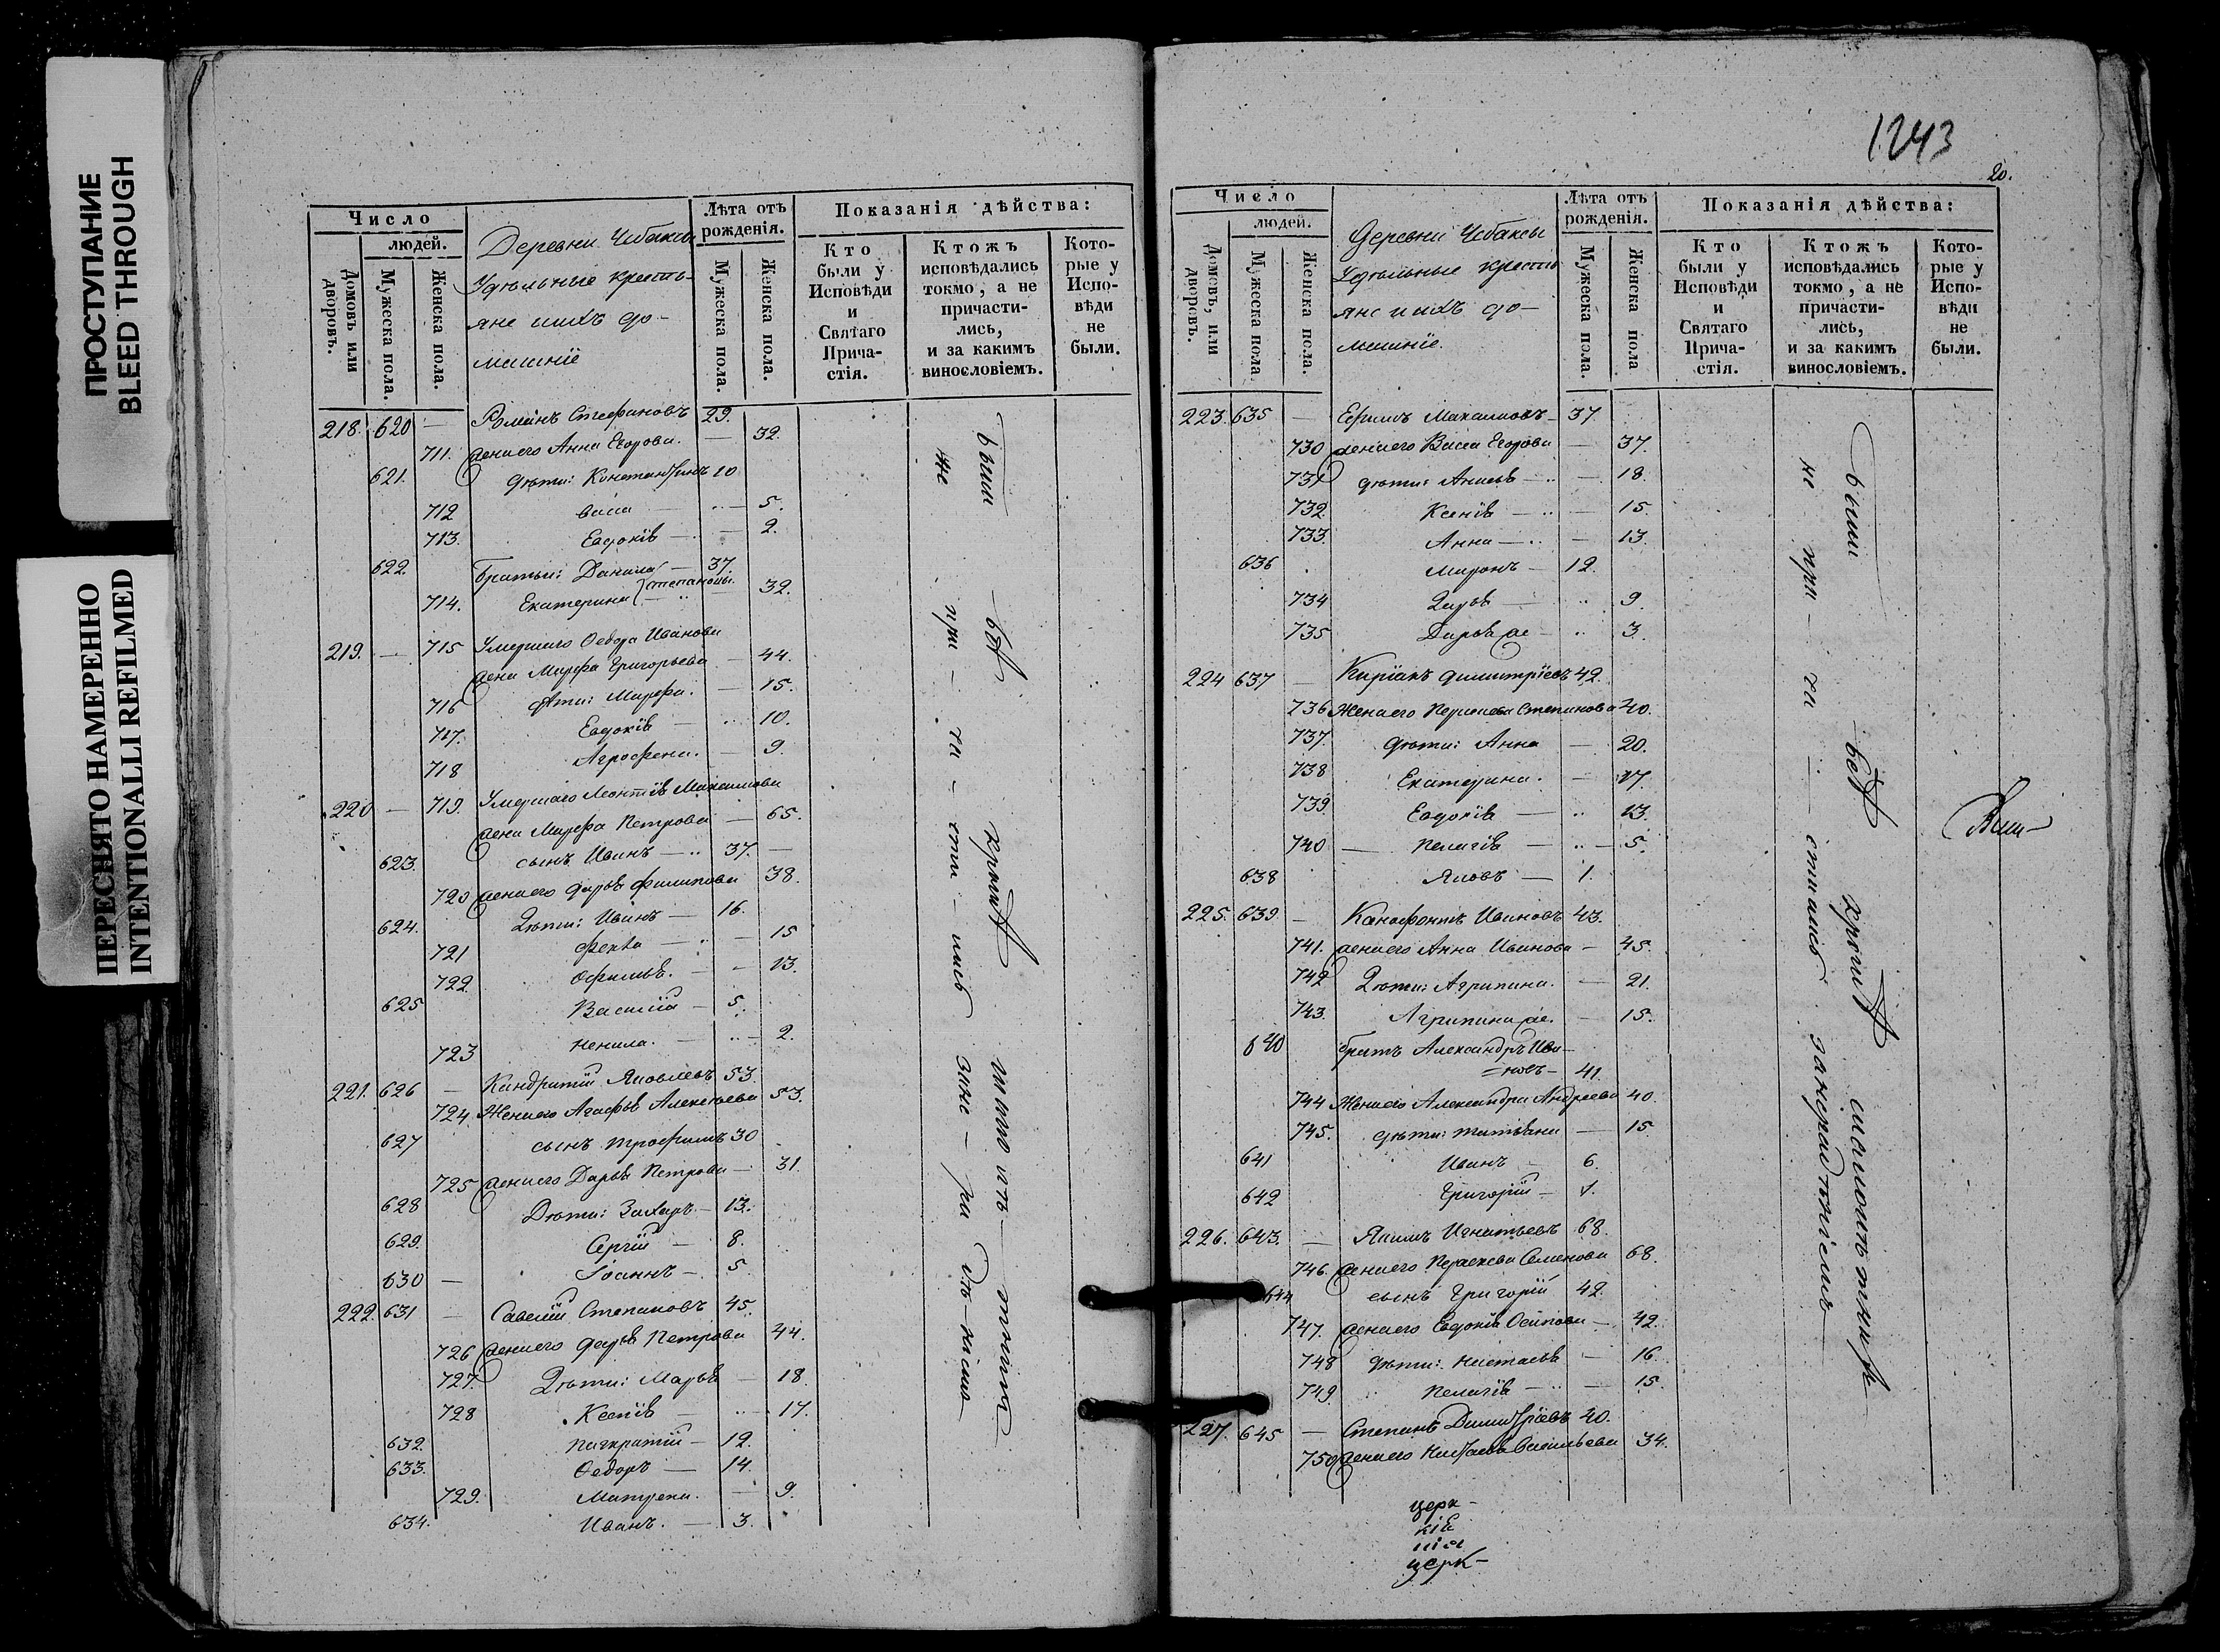 ПРОСТУПАНИЕ
BLEED THROUGH
ПЕРЕСНЯТО НАМЕРЕННО
INTENTIONALLI REFILMED
Число
людей.
Домовъ или дворовъ.
Мужеска пола.
Женска пола.
Деревни Чебаксы
Удѣльные кресть-
яне и ихъ до-
машніе
Лѣта отъ рожденія.
Мужеска пола.
Женска пола.
Показанія дѣйства:
Кто были у Исповѣди и Святаго Причастія.
Ктожъ исповѣдались токмо, а не причастились, и за какимъ винословіемъ.
Которые у Исповѣди не были.
218. 620 — Романъ Стефановъ 29.
711. жена его Анна Егорова. — 32.
621. дѣти: Константинъ 10
712 Васса — 5.
713. Евдокія — 2.
622. братья: Данила — 37.
Степановы
714. Екатерина — 32.
219. — 715 Умершаго Ѳедора Иванова
жена Марфа Григорьева — 44.
716 дѣти: Марфа. — 15.
717. Евдокія — 10.
718 Агрофена. — 9.
220 — 719. Умершаго Леонтія Максимова
жена Марфа Петрова — 65.
623. сынъ Иванъ — 37. —
720 жена его Дарья Филипова 38.
624. Дѣти: Иванъ — 16.
721 Фекла — 15
722 — 13.
625 Василій — 5.
723 Ненила. — 2.
221. 626 — Кондратій Яковлевъ 53.
724. Жена его Агафья Алексѣева 53.
627 сынъ Трофимъ 30
725 жена его Дарья Петрова — 31.
628 Дѣти: Захаръ — 13.
629. Сергій — 8.
630 — Іоаннъ — 5.
222. 631 — Савелій Степановъ 45.
726 жена его Дарья Петрова 44.
727. Дѣти: Марья — 18.
728 Ксенія — 17.
632. Панкратій — 12.
633. Ѳедоръ — 14.
729. Матрена. — 9.
634. Иванъ. — 3.
были
не при-ча-сти-лись
1243
20.
Число
людей.
Домовъ, или дворовъ.
Мужеска пола
Женска пола.
Деревни Чебаксы
Удѣльные кресть
яне и ихъ до-
машніе.
Лѣта отъ рожденія.
Мужеска пола.
Женска пола
Показанія дѣйства:
Кто были у Исповѣди и Святаго Причастія.
Ктожъ исповѣдались токмо, а не причастились, и за какимъ винословіемъ.
Которые у Исповѣди не были.
223. 635 — Ефимъ Максимовъ — 37.
730 жена его Васса Егорова — 37.
731 дѣти: Анисья — 18.
732. Ксенія — 15.
733. Анна — 13.
636 Миронъ — 12.
734 Дарья — 9.
735 Дарья же — 3.
224 637 — Киріакъ Димитріевъ 42.
736 Жена его Степанова 40.
737. дѣти: Анна — 20.
738 Екатерина. — 17.
739. Евдокія — 13.
740 — Пелагія — 5.
638 Яковъ — 1.
225. 639. — Ивановъ 43.
741. жена его Анна Иванова — 45.
742 Дѣти: Агрипина. — 21.
743. Агрипина же. — 15.
640 братъ Александръ Ива-
=новъ — 41.
744 Жена его Александра Андреева 40.
745. дѣти: Татьяна — 15.
641 Иванъ — 6.
642 Григорій — 1.
226. 643. — Якимъ Игнатьевъ 68.
746. жена его Параскева Семенова 68.
644 сынъ Григорій 42.
747. жена его Евдокія Осипова — 42.
748 дѣти: Настасья — 16.
749. Пелагія — 15.
227. 645 — Степанъ Димитріевъ 40.
750 жена его Настасья Васильева 34.
были
не при-ча-стились за нерадѣніемъ
церк-
кія
церк-